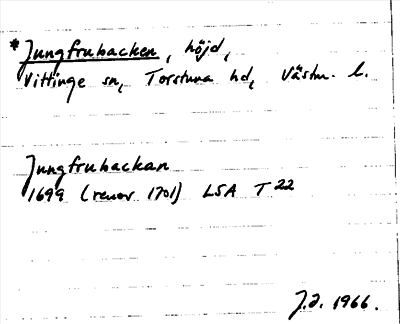 *Jungfrubacken, höjd,
Vittinge sn, Torstuna hd, Västm. l.
Jungfrubackan
1699 (renov 1701) LSA T 22
J.2. 1966.